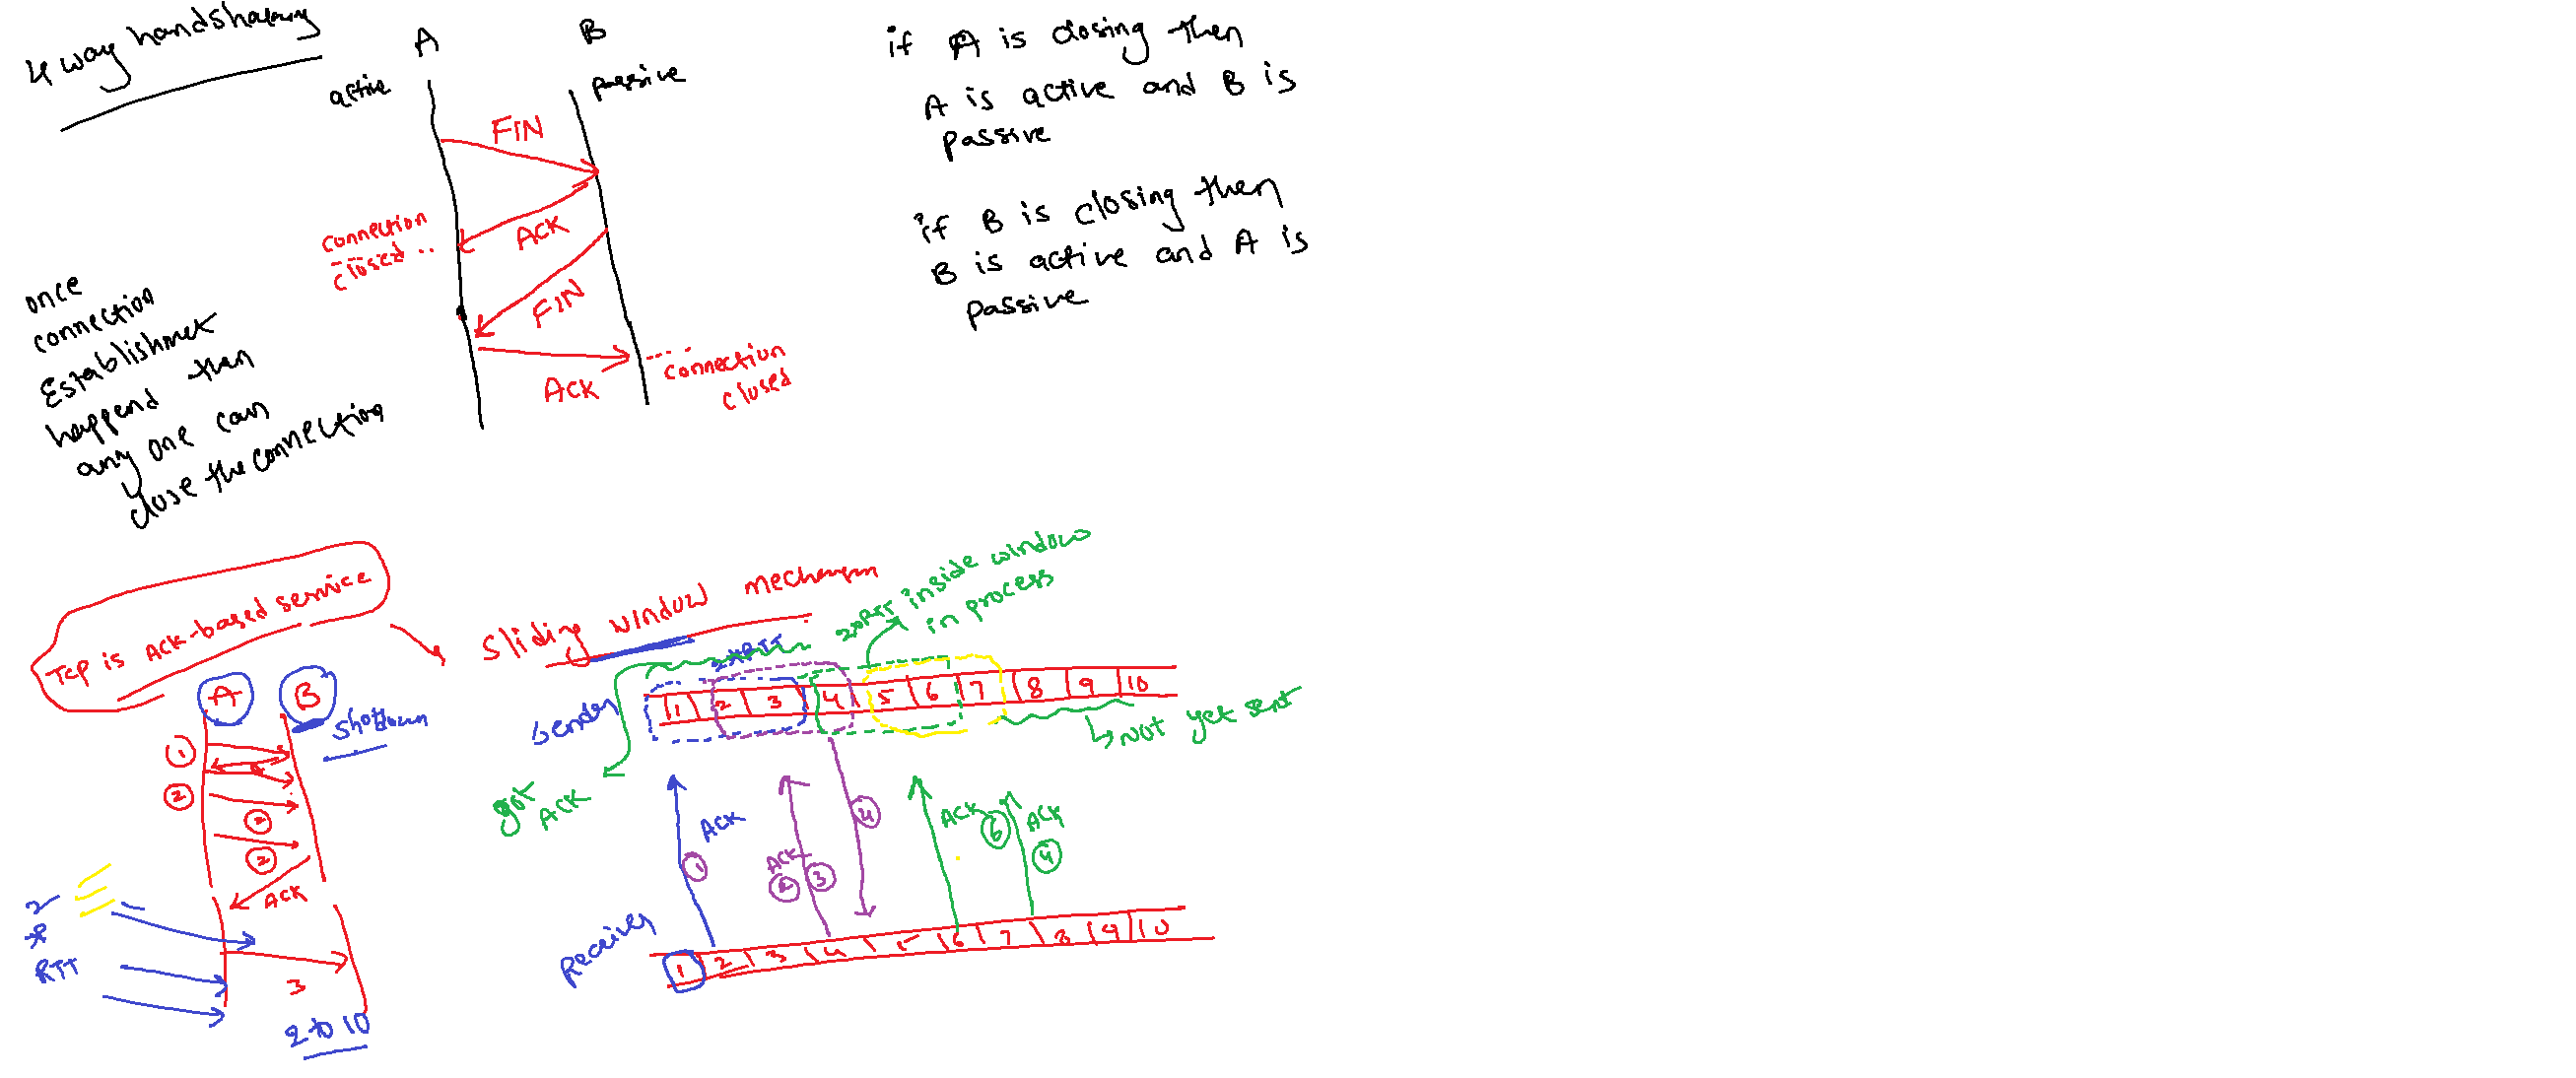 4 way handshaking
A
B
active
passive
FIN
ACK
connection
closed ..
FIN
ACK
connection
closed
if A is closing then
A is active and B is
passive
if B is closing then
B is active and A is
passive
once
connection
Establishmet
happend then
any one can
close the connection
TCP is ACK-based service
A
B
Shutdown
1
2
2
2
ACK
2
*
RTT
3
2 to 10
Sliding window mechanism
2*RTT
inside window
in process
Sender
1 2 3 4 5 6 7 8 9 10
not yet sent
got
ACK
ACK
1
ACK
2
3
4
ACK
6
ACK
4
Receiver
1 2 3 4 5 6 7 8 9 10